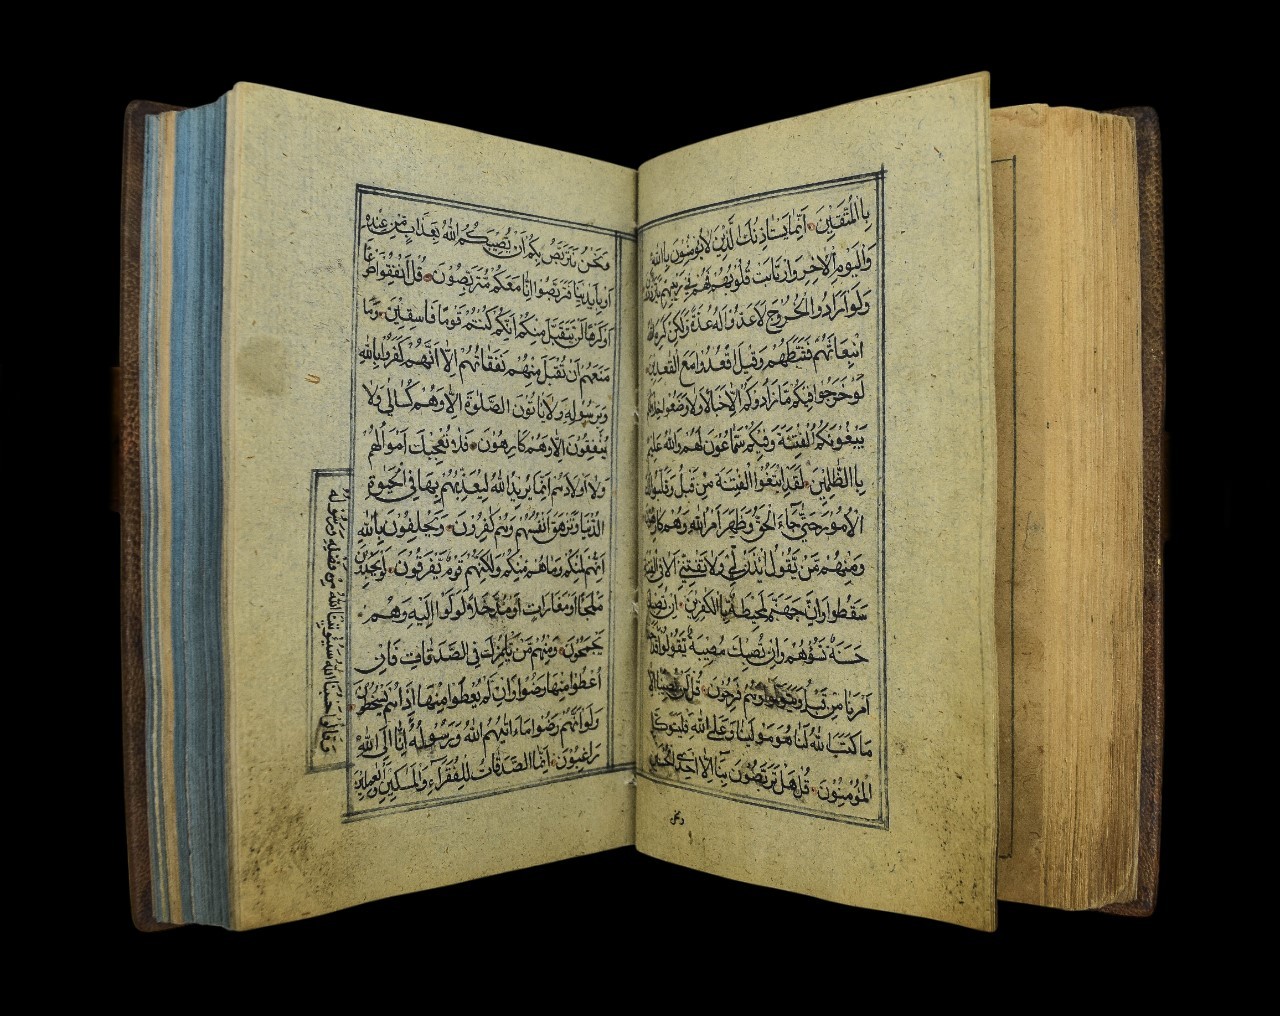 بِاالْمُتَّقِينَ اِنَّمَا يَسْتَاْذِنُكَ الَّذِينَ لَايُؤْمِنُونَ بِاالله
وَالْيَوْمِ الْاٰخِرِ وَارْتَابَتْ قُلُوبُهُمْ فَهُمْ فِي رَيْبِهِمْ يَتَرَدَّدُونَ
وَلَوْ اَرَادُوا الْخُرُوجَ لَاَعَدُّوا لَهُ عُدَّةً وَلٰكِنْ كَرِهَ اللهُ
انْبِعَاثَهُمْ فَثَبَّطَهُمْ وَقِيلَ اقْعُدُوا مَعَ الْقٰعِدِينَ
لَوْ خَرَجُوا فِيكُمْ مَا زَادُوكُمْ اِلَّا خَبَالًا وَلَا وَضَعُوا خِلَالَكُمْ
يَبْغُونَكُمُ الْفِتْنَةَ وَفِيكُمْ سَمَّاعُونَ لَهُمْ وَاللهُ عَلِيمٌ
بِاالظّٰلِمِينَ لَقَدِ ابْتَغَوُا الْفِتْنَةَ مِنْ قَبْلُ وَقَلَّبُوا لَكَ
الْاُمُورَ حَتّٰى جَاءَ الْحَقُّ وَظَهَرَ اَمْرُ اللهِ وَهُمْ كَارِهُونَ
وَمِنْهُمْ مَنْ يَقُولُ ائْذَنْ لِي وَلَا تَفْتِنِّي اَلَا فِي الْفِتْنَةِ
سَقَطُوا وَاِنَّ جَهَنَّمَ لَمُحِيطَةٌ بِاالْكٰفِرِينَ اِنْ تُصِبْكَ
حَسَنَةٌ تَسُؤْهُمْ وَاِنْ تُصِبْكَ مُصِيبَةٌ يَقُولُوا قَدْ اَخَذْنَا
اَمْرَنَا مِنْ قَبْلُ وَيَتَوَلَّوْا وَهُمْ فَرِحُونَ قُلْ لَنْ يُصِيبَنَا اِلَّا
مَا كَتَبَ اللهُ لَنَا هُوَ مَوْلٰينَا وَعَلَى اللهِ فَلْيَتَوَكَّلِ
الْمُؤْمِنُونَ قُلْ هَلْ تَرَبَّصُونَ بِنَا اِلَّا اِحْدَى الْحُسْنَيَيْنِ
وَنَحْنُ نَتَرَبَّصُ بِكُمْ اَنْ يُصِيبَكُمُ اللهُ بِعَذَابٍ مِنْ عِنْدِهِ
اَوْ بِاَيْدِينَا فَتَرَبَّصُوا اِنَّا مَعَكُمْ مُتَرَبِّصُونَ قُلْ اَنْفِقُوا طَوْعًا
اَوْ كَرْهًا لَنْ يُتَقَبَّلَ مِنْكُمْ اِنَّكُمْ كُنْتُمْ قَوْمًا فَاسِقِينَ وَمَا
مَنَعَهُمْ اَنْ تُقْبَلَ مِنْهُمْ نَفَقَاتُهُمْ اِلَّا اَنَّهُمْ كَفَرُوا بِاللهِ
وَبِرَسُولِهِ وَلَا يَاْتُونَ الصَّلٰوةَ اِلَّا وَهُمْ كُسَالٰى وَلَا
يُنْفِقُونَ اِلَّا وَهُمْ كَارِهُونَ فَلَا تُعْجِبْكَ اَمْوَالُهُمْ
وَلَا اَوْلَادُهُمْ اِنَّمَا يُرِيدُ اللهُ لِيُعَذِّبَهُمْ بِهَا فِي الْحَيٰوةِ
الدُّنْيَا وَتَزْهَقَ اَنْفُسُهُمْ وَهُمْ كٰفِرُونَ وَيَحْلِفُونَ بِاللهِ
اِنَّهُمْ لَمِنْكُمْ وَمَا هُمْ مِنْكُمْ وَلٰكِنَّهُمْ قَوْمٌ يَفْرَقُونَ لَوْ يَجِدُونَ
مَلْجَاً اَوْ مَغَارَاتٍ اَوْ مُدَّخَلًا لَوَلَّوْا اِلَيْهِ وَهُمْ
يَجْمَحُونَ وَمِنْهُمْ مَنْ يَلْمِزُكَ فِي الصَّدَقَاتِ فَاِنْ
اُعْطُوا مِنْهَا رَضُوا وَاِنْ لَمْ يُعْطَوْا مِنْهَا اِذَا هُمْ يَسْخَطُونَ
وَلَوْ اَنَّهُمْ رَضُوا مَا اٰتٰيهُمُ اللهُ وَرَسُولُهُ اِنَّا اِلَى اللهِ
رَاغِبُونَ اِنَّمَا الصَّدَقَاتُ لِلْفُقَرَاءِ وَالْمَسٰكِينِ وَالْعَامِلِينَ
وَقَالُوا حَسْبُنَا اللهُ سَيُؤْتِينَا اللهُ مِنْ فَضْلِهِ وَرَسُولُهُ